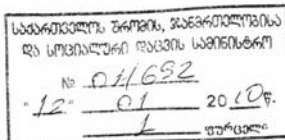 საქართველოს შრომის, ჯანმრთელობისა
და სოციალური დაცვის სამინისტრო
№ 01/692
"12" 01 2010წ.
1 ფურცელი